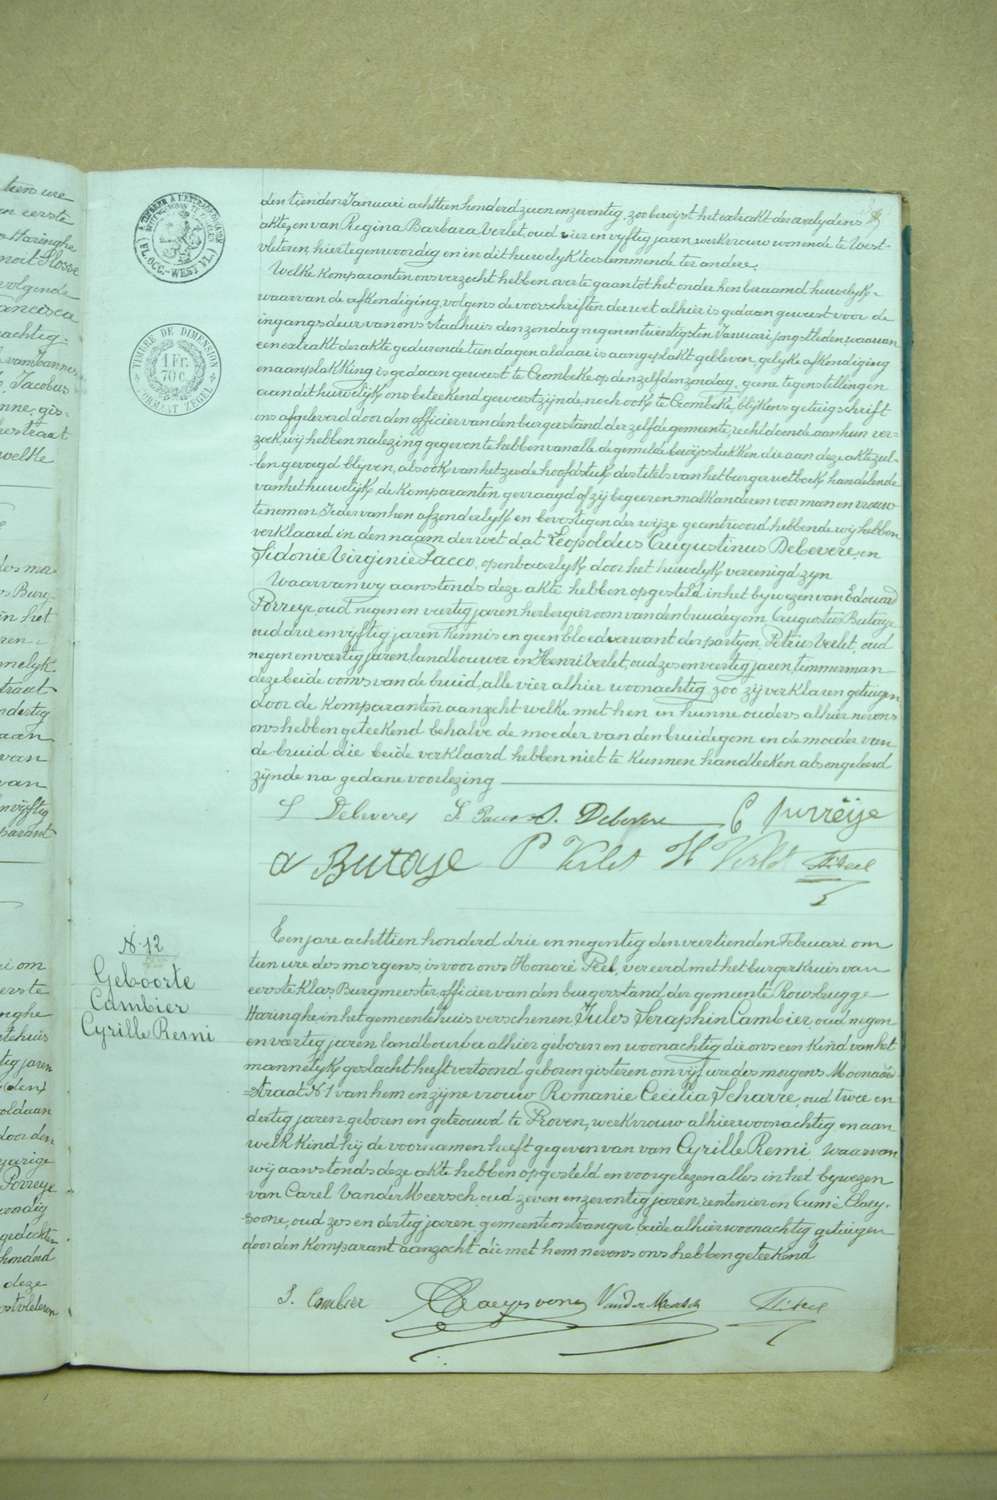 TIMBRE DE DIMENSION
1 Fr.
70 C.
FORMAAT ZEGEL
(FL. OCC. - WEST VL.)
den tienden Januari achttien honderd zeven en zeventig, zoo bewijst het extrakt des overlijdens
akte, en van Regina Barbara Verlet, oud vier en vijftig jaren, werkvrouw wonende te West-
vleteren, hiertegenwoordig en in dit huwelijk toestemmende ter andere.
Welke komparanten ons verzocht hebben over te gaan tot het onder hen beraamd huwelijk
waarvan de afkondiging volgens de voorschriften der wet alhier is gedaan geweest voor de
ingangsdeur van ons stadhuis den zondag negen en twintigsten Januari jongstleden, waarvan
een extrakt der akte gedurende tien dagen aldaar is aangeplakt gebleven, gelijke afkondiging
en aanplakking is gedaan geweest te Crombeke op den zelfden zondag, geene tegenstellingen
aan dit huwelijk ons beteekend geweest zijnde, noch ook te Crombeke, blijkens getuigschrift
ons afgeleverd door den officier van den burgerstand der zelfde gemeente, recht doende aan hun ver-
zoek, wij hebben na lezing gegeven te hebben van alle de gemelde bewijsstukken die aan deze akte zul-
len gevoegd blijven, alsook van het zesde hoofdstuk des titels van het burger wetboek handelende
van het huwelijk, de komparanten gevraagd of zij begeeren malkanderen voor man en vrouw
te nemen. Ieder van hen afzonderlijk en bevestigender wijze geantwoord hebbende wij hebben
verklaard in den naam der wet dat Leopoldus Augustinus Debevere, en
Sidonie Virginie Pacco, openbaarlijk door het huwelijk vereenigd zijn
Waarvan wij aanstonds deze akte hebben opgesteld in het bijwezen van Edouard
Porreye, oud negen en veertig jaren herbergier oom van den bruidegom, Augustus Butaye
oud drie en vijftig jaren kennis en geen bloedverwant der partijen, Petrus Verlet, oud
negen en veertig jaren landbouwer en Henri Verlet, oud zes en veertig jaren, timmerman
deze beide ooms van de bruid, alle vier alhier woonachtig, zoo zij verklaren getuigen
door de komparanten aanzocht welke met hen en hunne ouders alhier nevens
ons hebben geteekend behalve de moeder van den bruidegom en de moeder van
de bruid die beide verklaard hebben niet te kunnen handteeken als ongeleerd
zijnde na gedane voorlezing
L Debevere S. Pacco D. Debevere E Porreije
A Butaye P Verlet H Verlet H. Peel
N. 12
Geboorte
Cambier
Cyrille Remi
Een jare achttien honderd drie en negentig den veertienden Februari om
tien ure des morgens, is voor ons Honoré Peel, vereerd met het burgerkruis van
eerste klas, Burgmeester, officier van den burgerstand, der gemeente Rousbrugge
Haringhe in het gemeentehuis verschenen Jules Seraphin Cambier, oud negen
en veertig jaren landbouwer alhier geboren en woonachtig die ons een kind van het
mannelijk geslacht heeft vertoond geboren gisteren om vijf ure des morgens
straat N 1 van hem en zijne vrouw Romanie Cecilia Scharre, oud twee en
dertig jaren geboren en getrouwd te Proven, werkvrouw alhier woonachtig en aan
welk kind hij de voornamen heeft gegeven van van Cyrille Remi waarvan
wij aanstonds deze akte hebben opgesteld en voorgelezen alles in het bijwezen
van Carel Vander Meersch oud zeven en zeventig jaren, rentenier en Cumé Claey-
soone, oud zes en dertig jaren, gemeente ontvanger, beide alhier woonachtig getuigen
door den komparant aanzocht die met hem nevens ons hebben geteekend
J. Cambier Claeysoone Vander Meersch H. Peel